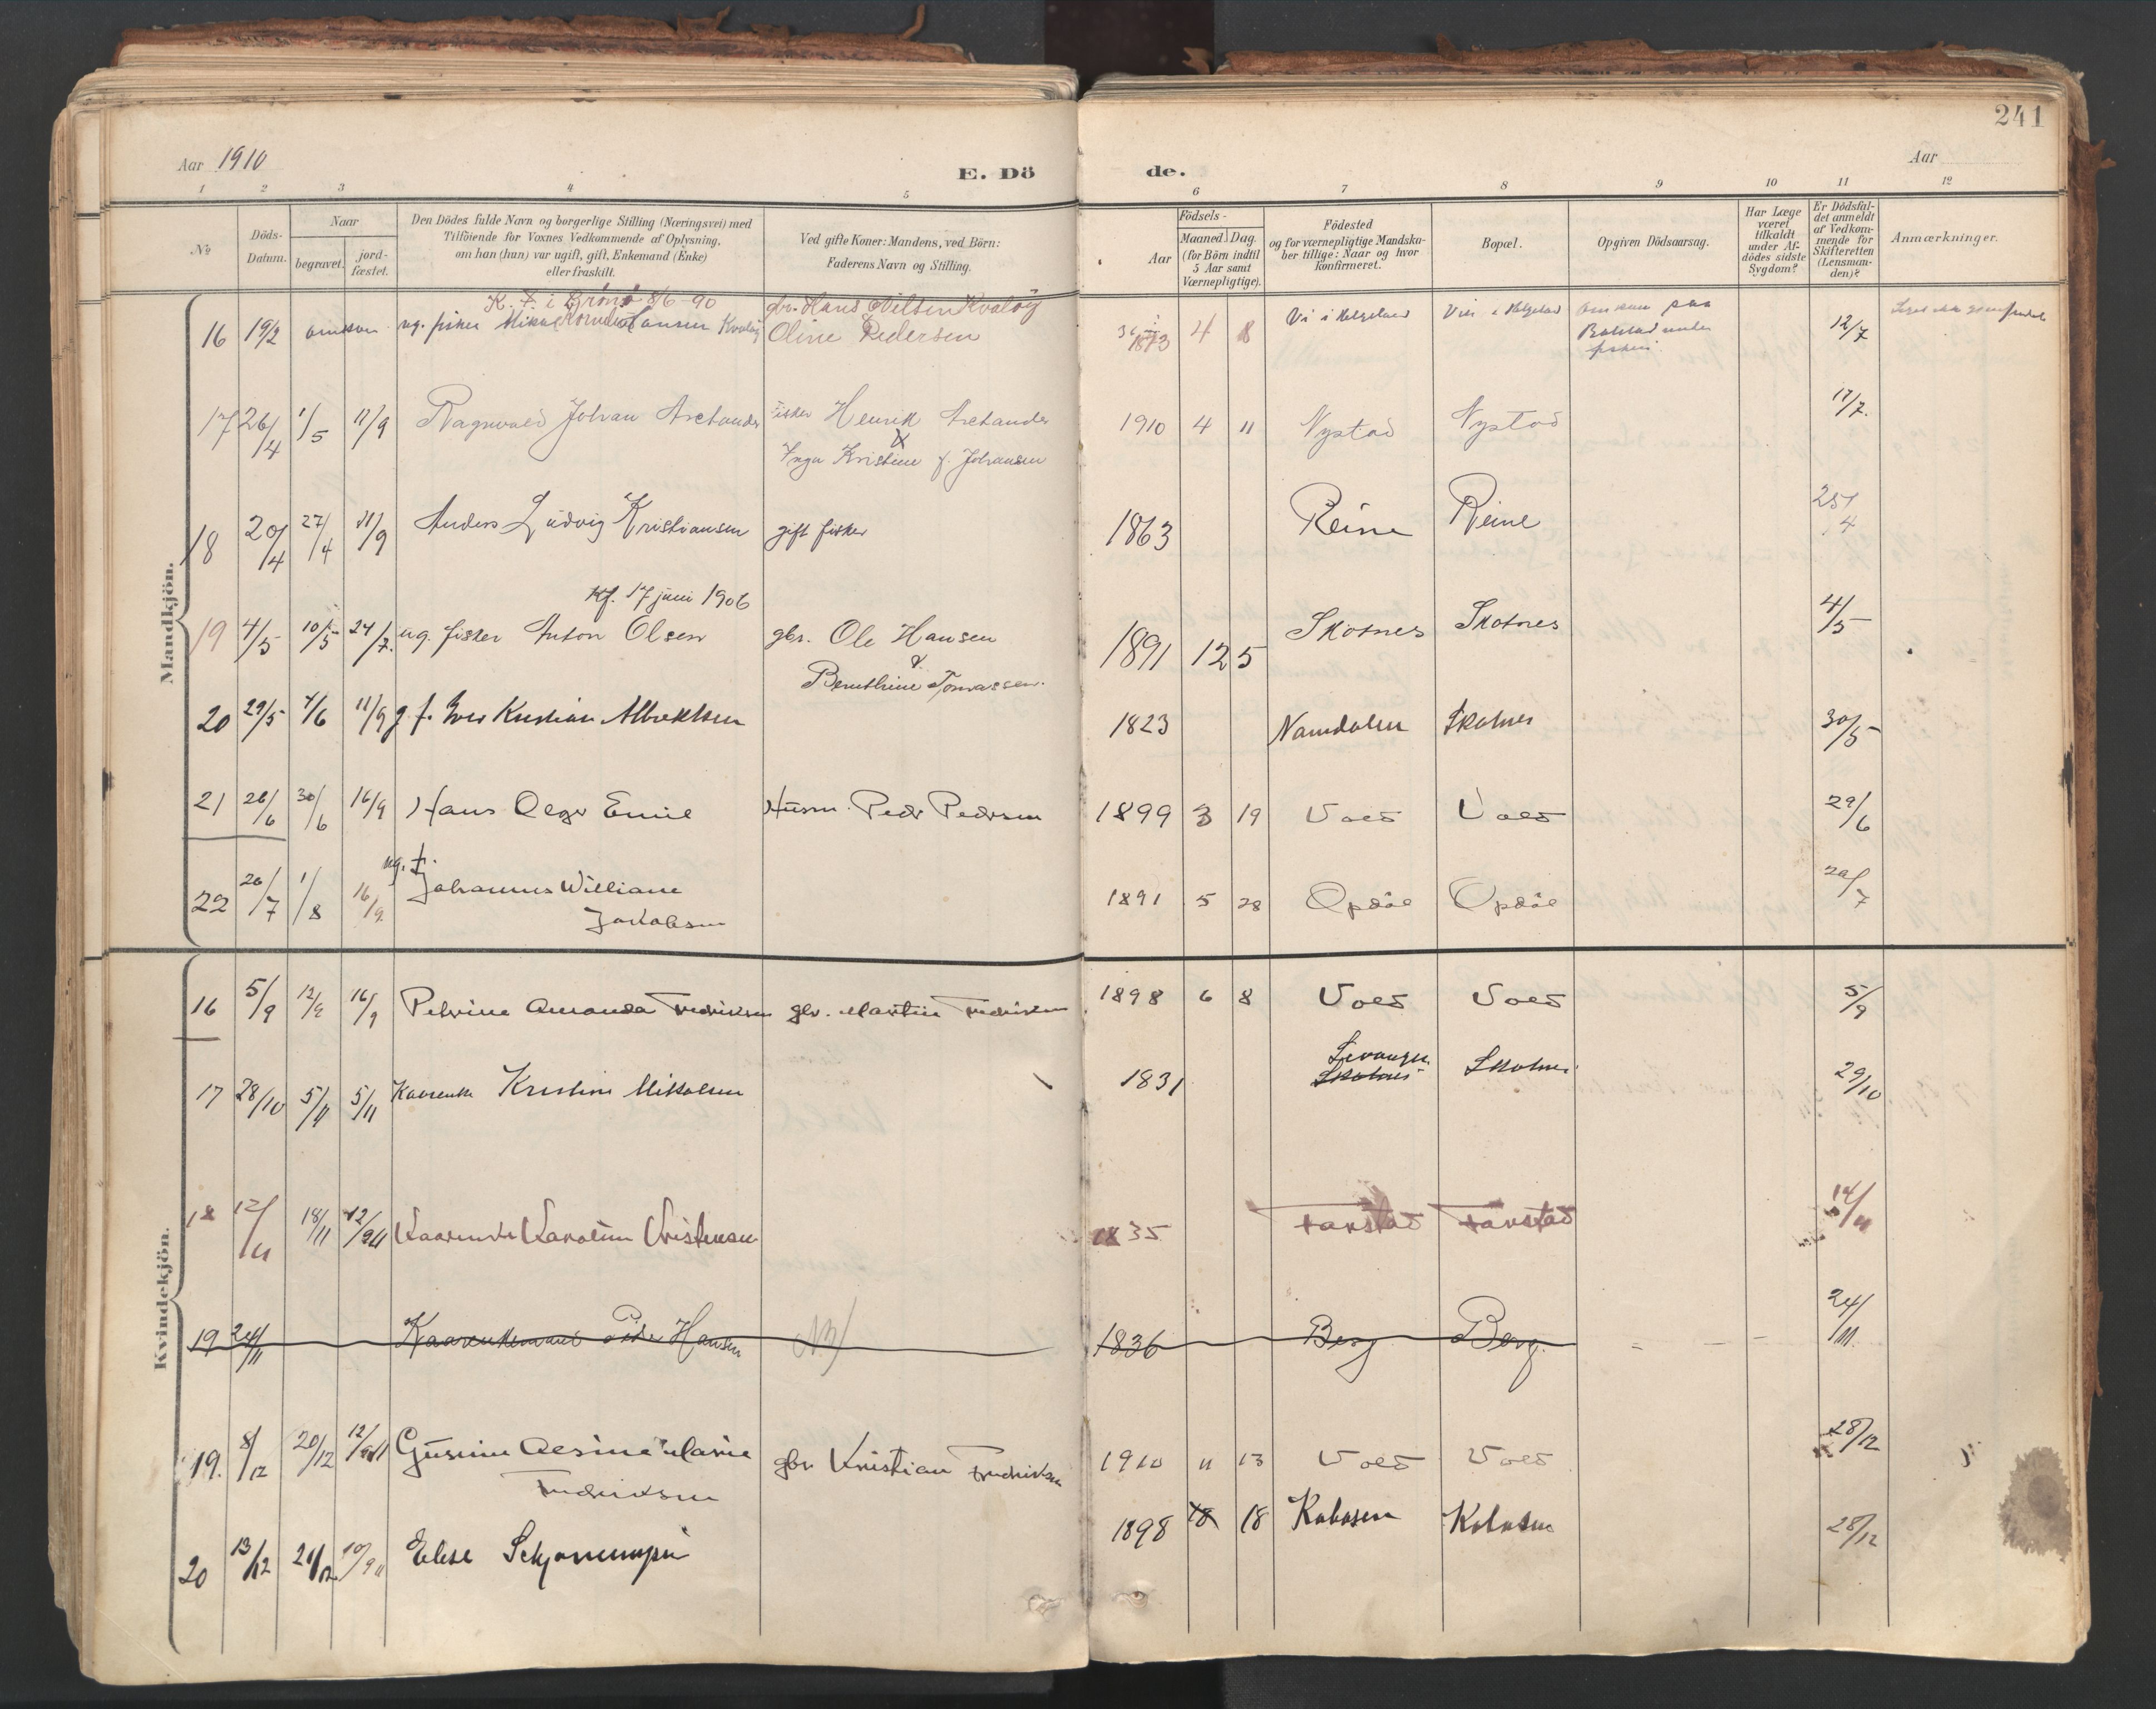 241
Aar 1910
E. Dö
de.
Aar
1 2 3 4 5 6 7 8 9 10 11 12
No
Döds-
Datum.
Naar
begravet.
jord-
fæstet.
Den Dödes fulde Navn og borgerlige Stilling (Næringsvei) med
Tilföiende for Voxnes Vedkommende af Oplysning,
om han (hun) var ugift, gift, Enkemand (Enke)
eller fraskilt.
Ved gifte Koner: Mandens, ved Börn:
Faderens Navn og Stilling.
Födsels-
Aar
Maaned Dag
(for Börn indtil
5 Aar samt
Værnepligtige).
Födested
og for værnepligtige Mandska-
ber tillige: Naar og hvor
konfirmeret.
Bopæl.
Opgiven Dödsaarsag.
Har Læge
været
tilkaldt
under Af-
dödes sidste
Sygdom?
Er Dödsfal-
det anmeldt
af Vedkom-
mende for
Skifteretten
(Lensman-
den)?
Anmærkninger.
Mandkjön.
K. F. i Brönö 8/6-90
gbr. Hans Nilsen Kvaløy
16 19/2 omkom ug. fisker Mikal Kornelius Hansen Kvaløy & Oline Pedersen 1873 4 8 Vi i Helgeland Vi i Helgeland omkom paa 12/7
Balstad under
fiskeri
17 26/4 1/5 11/9 Ragnvald Johan Archander fisker Henrik Archander 1910 4 11 Nystad Nystad 17/7.
&
Inga Kristine f. Johansen
18 20/4 27/4 11/9 Anders Ludvig Kristiansen gift fisker 1863 Reine Reine 25/4
Kf. 17 juni 1906
19 4/5 10/5 24/7. ug. fisker Anton Olsen gbr. Ole Hansen 1891 12 5 Skotnes Skotnes 4/5
&
Bernthine Tomassen.
20 29/5 4/6 11/9 g. f. Iver Kristian Albrektsen 1823 Namdalen Skotnes 30/5
21 26/6 30/6 16/9 Hans Olger Emil Husm. Peder Pedersen 1899 3 19 Vold Vold 29/6
ug. f.
22 26/7 1/8 16/9 Johannes William 1891 5 28 Opdøl Opdøl 29/7
Jakobsen
Kvindekjön.
16 5/9 12/9 16/9 Petrine Amanda Fredriksen gbr. Martin Fredriksen 1898 6 8 Vold Vold 5/9
Levanger
17 28/10 5/11 5/11 Kaarenke Kristine Mikalsen 1831 Skotnes Skotnes 29/10
18 12/11 18/11 12/9 11 Kaarenke Karoline Kristensen 1835 Farstad Farstad 14/11
19 24/11 Kaarenkemand Peder Hansen NB/ 1836 Berg Berg. 24/11
19. 8/12 20/12 12/9 11 Gusine Olsine Marie gbr Kristian Fredriksen 1910 11 13 Vold Vold 28/12
Fredriksen
20 13/12 21/12 10/9 11 Elise 1898 18 18 28/12